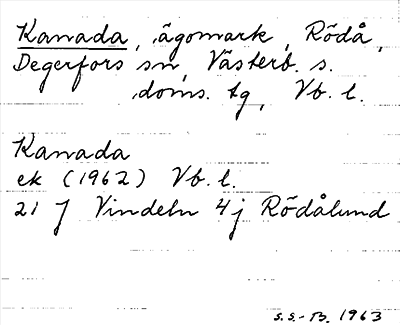 Kanada, ägomark, Rödå,
Degerfors sn, Västerb. s.
doms. tg, Vb. l.
Kanada
ek (1962) Vb. l.
21 J Vindeln 4j Rödålund
S.S.-B. 1963